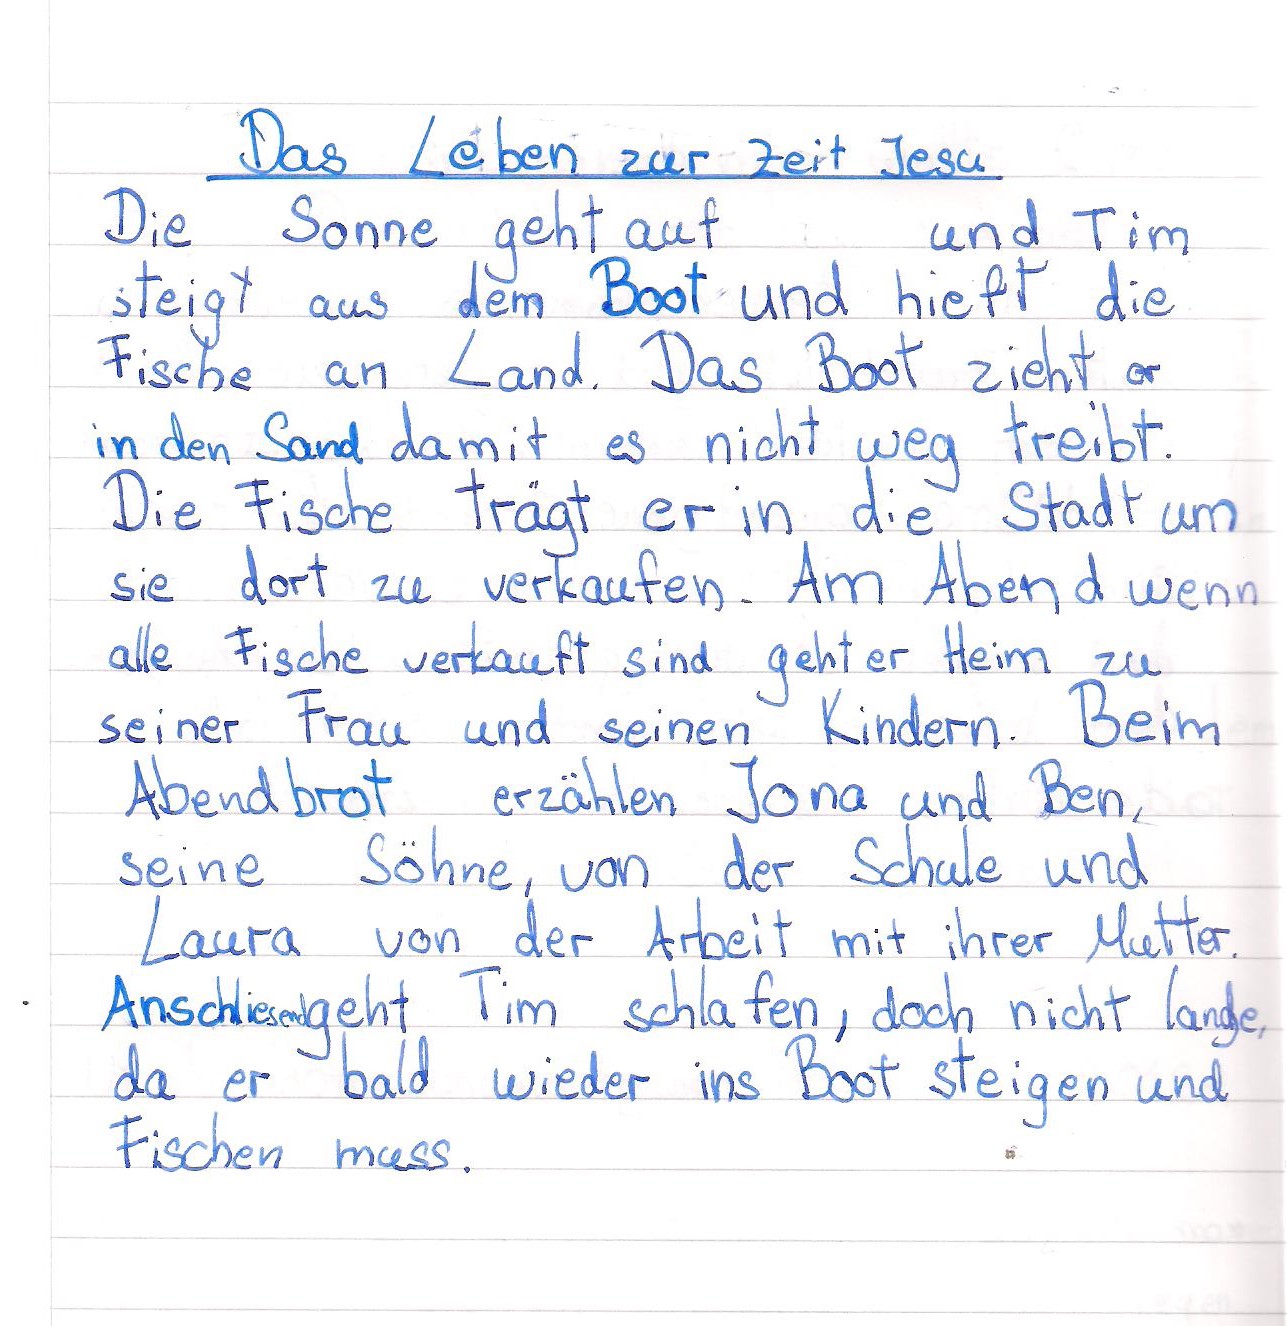 Das Leben zur Zeit Jesu
Die Sonne geht auf und Tim
steigt aus dem Boot und hieft die
Fische an Land. Das Boot zieht er
in den Sand damit es nicht weg treibt.
Die Fische trägt er in die Stadt um
sie dort zu verkaufen. Am Abend wenn
alle Fische verkauft sind geht er Heim zu
seiner Frau und seinen Kindern. Beim
Abendbrot erzählen Jona und Ben,
seine Söhne, von der Schule und
Laura von der Arbeit mit ihrer Mutter.
Anschliesend geht Tim schlafen, doch nicht lange,
da er bald wieder ins Boot steigen und
Fischen muss.